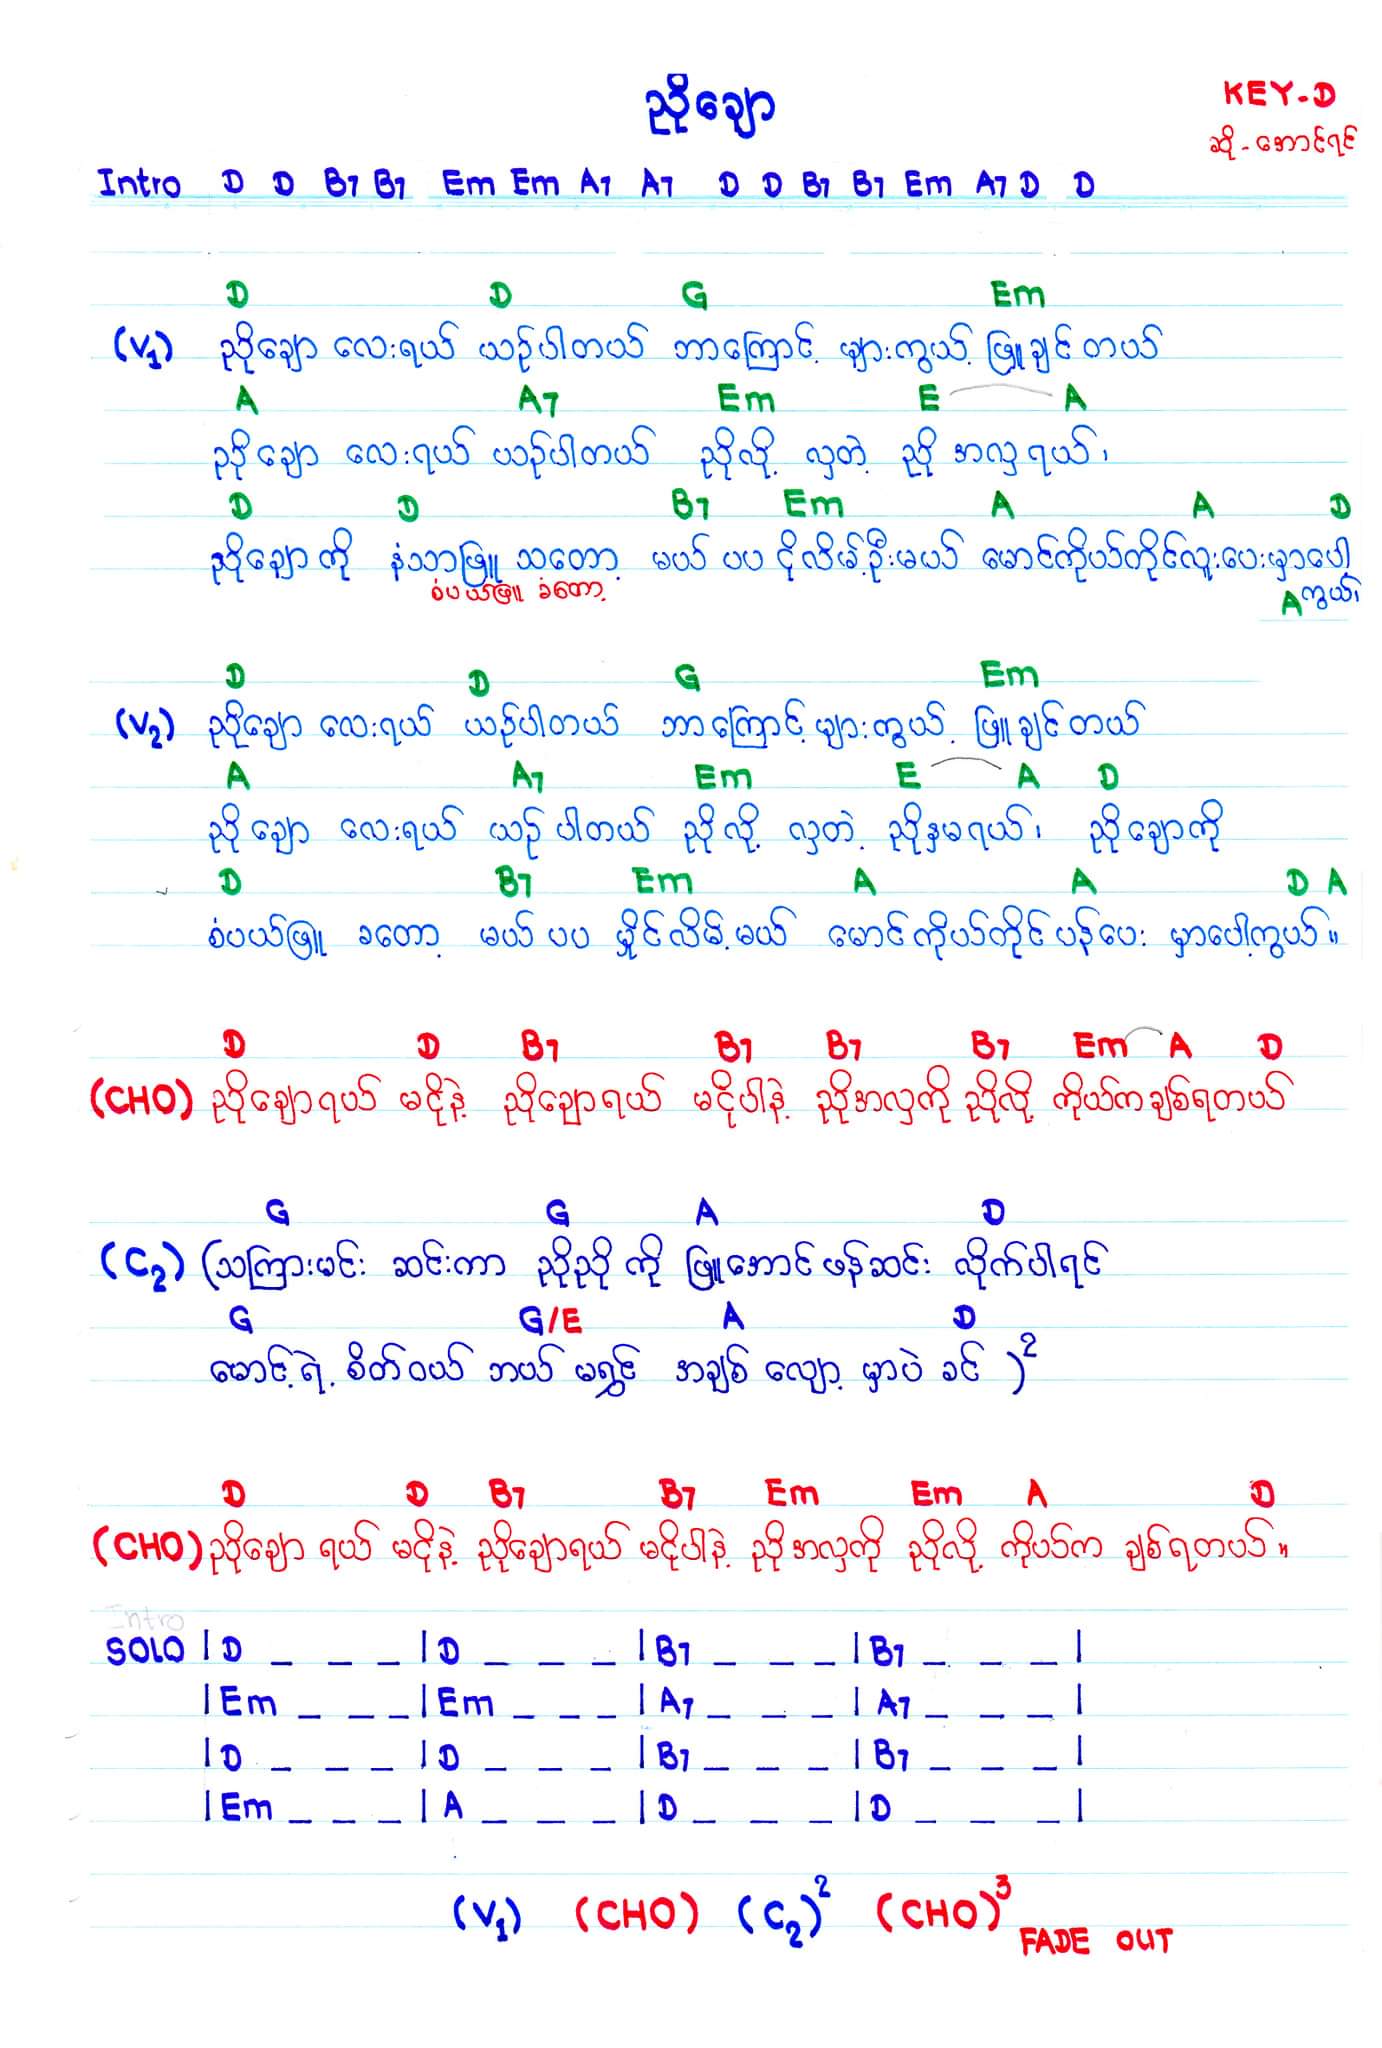 ညိုချော
KEY-D
ဆို - အောင်ရင်
Intro D D B7 B7 Em Em A7 A7 D D B7 B7 Em A7 D D
D D G Em
(V1) ညိုချော လေးရယ် ယဉ်ပါတယ် ဘာကြောင့် များကွယ့် ဖြူချင်တယ်
A A7 Em E A
ညိုချော လေးရယ် ယဉ်ပါတယ် ညိုလို့ လှတဲ့ ညိုအလှရယ်၊
D D B7 Em A A D
ညိုချောကို နံ့သာဖြူ သတော့ မယ် ပပ ငိုလိမ့်ဦးမယ် မောင်ကိုယ်တိုင်လူးပေးမှာပေါ့
စံပယ်ဖြူ ခံတော့
A ကွယ်၊
D D G Em
(V2) ညိုချော လေးရယ် ယဉ်ပါတယ် ဘာကြောင့် များကွယ့် ဖြူချင်တယ်
A A7 Em E A D
ညိုချော လေးရယ် ယဉ်ပါတယ် ညိုလို့ လှတဲ့ ညိုနှမရယ်၊ ညိုချောကို
D B7 Em A A D A
စံပယ်ဖြူ ခတော့ မယ် ပပ မှိုင်လိမ့်မယ် မောင်ကိုယ်တိုင် ပန်ပေး မှာပေါ့ကွယ်။
D D B7 B7 B7 B7 Em A D
(CHO) ညိုချောရယ် မငိုနဲ့ ညိုချောရယ် မငိုပါနဲ့ ညိုအလှကို ညိုလို့ ကိုယ်ကချစ်ရတယ်
G G A D
(C2) (သကြားမင်း ဆင်းကာ ညိုညို ကို ဖြူအောင်ဖန်ဆင်း လိုက်ပါရင်
G G/E A D
မောင့်ရဲ့ စိတ်ဝယ် ဘယ် မရွှင် အချစ် လျော့ မှာပဲ ခင် )2
D D B7 B7 Em Em A D
(CHO) ညိုချော ရယ် မငိုနဲ့ ညိုချောရယ် မငိုပါနဲ့ ညိုအလှကို ညိုလို့ ကိုယ်က ချစ်ရတယ်။
Intro
SOLO | D _ _ _ | D _ _ _ | B7 _ _ _ | B7 _ _ _ |
| Em _ _ _ | Em _ _ _ | A7 _ _ _ | A7 _ _ _ |
| D _ _ _ | D _ _ _ | B7 _ _ _ | B7 _ _ _ |
| Em _ _ _ | A _ _ _ | D _ _ _ | D _ _ _ |
(V1) (CHO) (C2)2 (CHO)3
FADE OUT